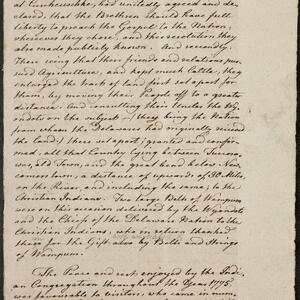 at Cushcushke, had unitedly agreed and de-
clared, that the Brethren should have full
liberty to preach the Gospel to the Nation,
wheresoever they chose, and this resolution they
also made publicly known. And secondly:
There seeing that these friends and relations pur-
sued Agriculture, and kept much Cattle, they
enlarged the tract of land first set apart for
them, by moving their People off to a greater
distance. And consulting their Uncle the Wy-
andots on the subject — they being the Nation
from whom the Delawares had originally received
the land; there set apart, granted and confir-
med, all that Country lying between Tuscara-
was, old Town, and the great bend below New-
comers town, a distance of upwards of 30 Miles
on the River, and including the same; to the
Christian Indians. Two large Belts of Wampum
were on this occasion delivered by the Wyandots
and the Chiefs of the Delaware Nation to the
Christian Indians, who in return thanked
them for the Gift also by Belts and Strings
of Wampum.
The Peace and rest enjoyed by the Indi-
an Congregation throughout the Year 1775
was favourable to visitors, who came in num-